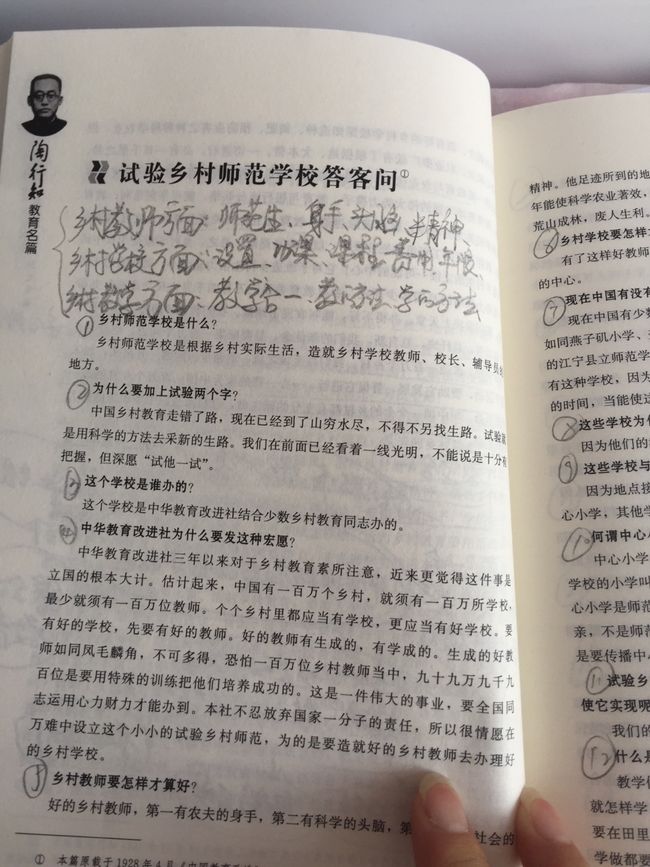 陶行知
教育名篇
试验乡村师范学校答客问①
乡村教师方面：师范生、身手、头脑、精神、
乡村学校方面：设置、功课、课程、
乡村教学方面：教学合一、教的方法、学的方法
① 乡村师范学校是什么？
乡村师范学校是根据乡村实际生活，造就乡村学校教师、校长、辅导员的
地方。
② 为什么要加上试验两个字？
中国乡村教育走错了路，现在已经到了山穷水尽，不得不另找生路。试验就
是用科学的方法去采新的生路。我们在前面已经看着一线光明，不能说是十分有
把握，但深愿“试他一试”。
③ 这个学校是谁办的？
这个学校是中华教育改进社结合少数乡村教育同志办的。
④ 中华教育改进社为什么要发这种宏愿？
中华教育改进社三年以来对于乡村教育素所注意，近来更觉得这件事是
立国的根本大计。估计起来，中国有一百万个乡村，就须有一百万所学校，
最少就须有一百万位教师。个个乡村里都应当有学校，更应当有好学校。要
有好的学校，先要有好的教师。好的教师有生成的，有学成的。生成的好教
师如同凤毛麟角，不可多得，恐怕一百万位乡村教师当中，九十九万九千九
百位是要用特殊的训练把他们培养成功的。这是一件伟大的事业，要全国同
志运用心力财力才能办到。本社不忍放弃国家一分子的责任，所以很情愿在
万难中设立这个小小的试验乡村师范，为的是要造就好的乡村教师去办理好
的乡村学校。
⑤ 乡村教师要怎样才算好？
好的乡村教师，第一有农夫的身手，第二有科学的头脑，第 社会的
① 本篇原载于1928年4月《中国教育
精神。他足迹所到的地
年能使科学农业著效，
荒山成林，废人生利。
⑥ 乡村学校要怎样
有了这样好教师
的中心。
⑦ 现在中国有没有
现在中国有少数
如同燕子矶小学、
的江宁县立师范学
有这种学校，因为
的时间，当能使这
⑧ 这些学校为什
因为他们的
⑨ 这些学校与
因为地点接
心小学，其他学
⑩ 何谓中心小
中心小学
学校的小学叫
心小学是师范
亲，不是师范
是要传播中心
11 试验乡
使它实现呢
我们的
12 什么是
教学做
就怎样学
要在田里
学做都要